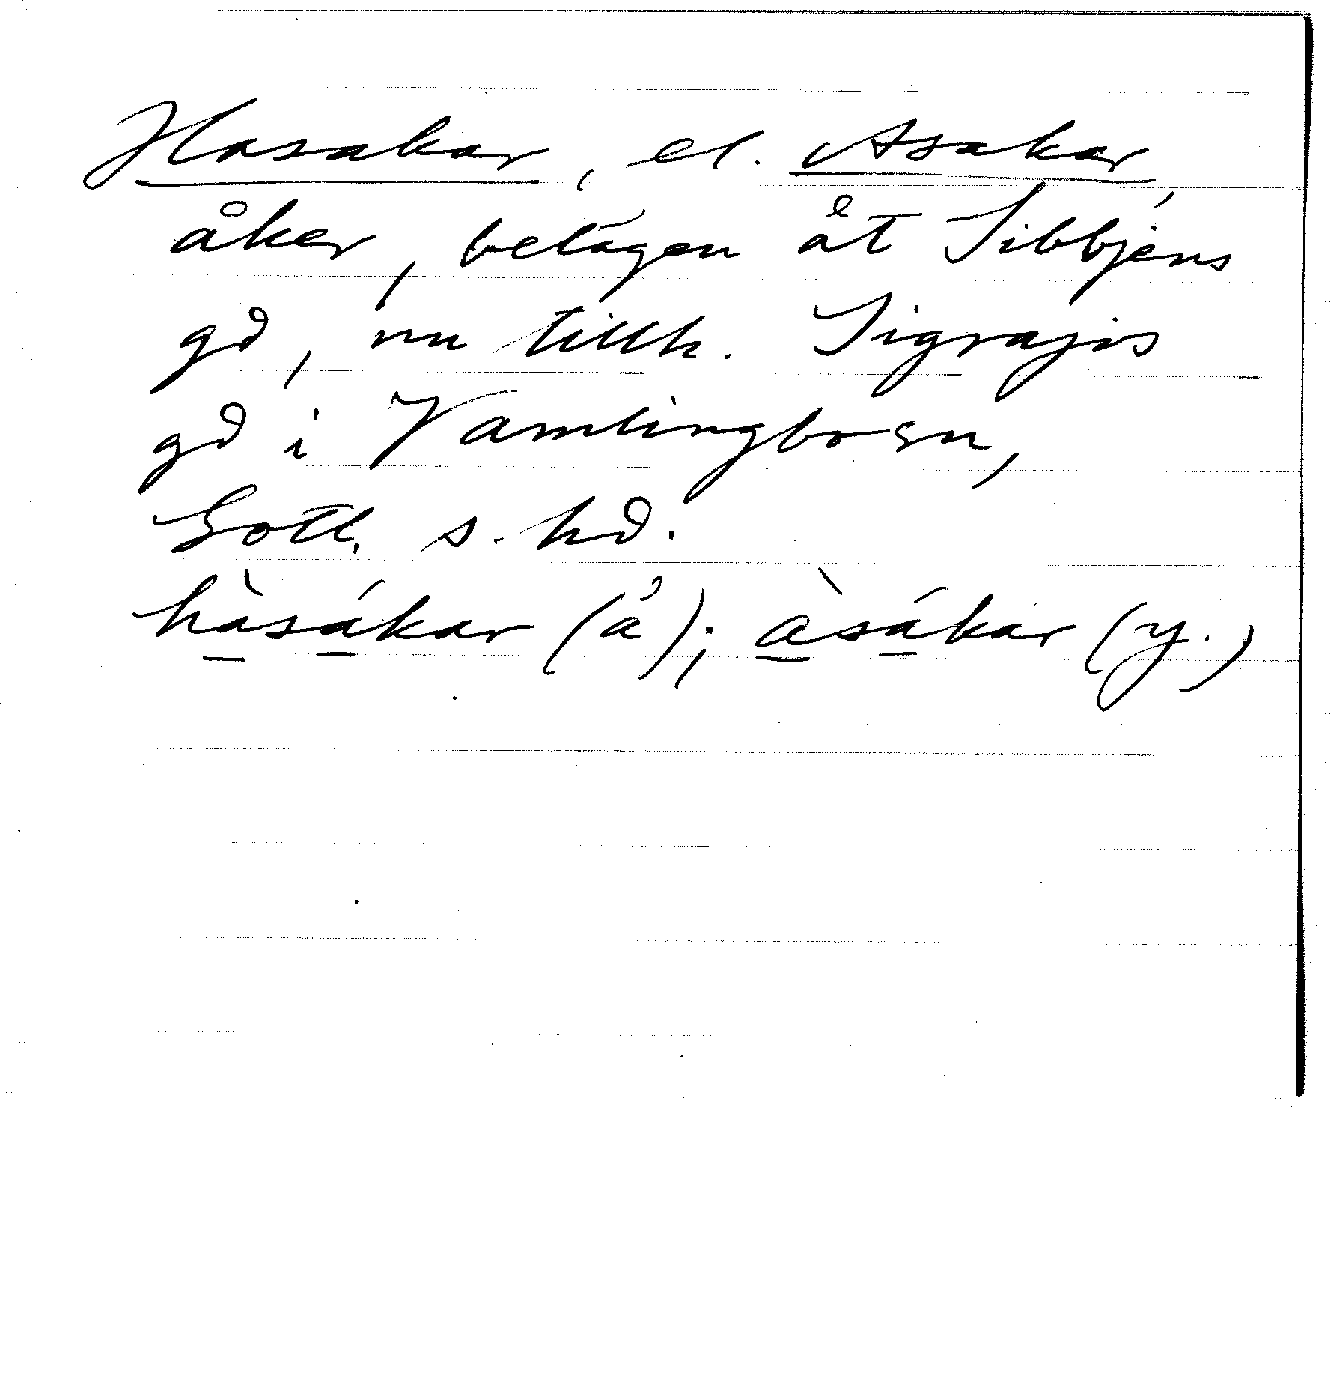 Hasakar, el. Asakar,
åker, belägen åt Sibbjens
gd, nu tillh. Sigrajvs
gd i Vamlingbo sn,
Gotl. s. hd.
hàsákar (å); àsákar (y.)